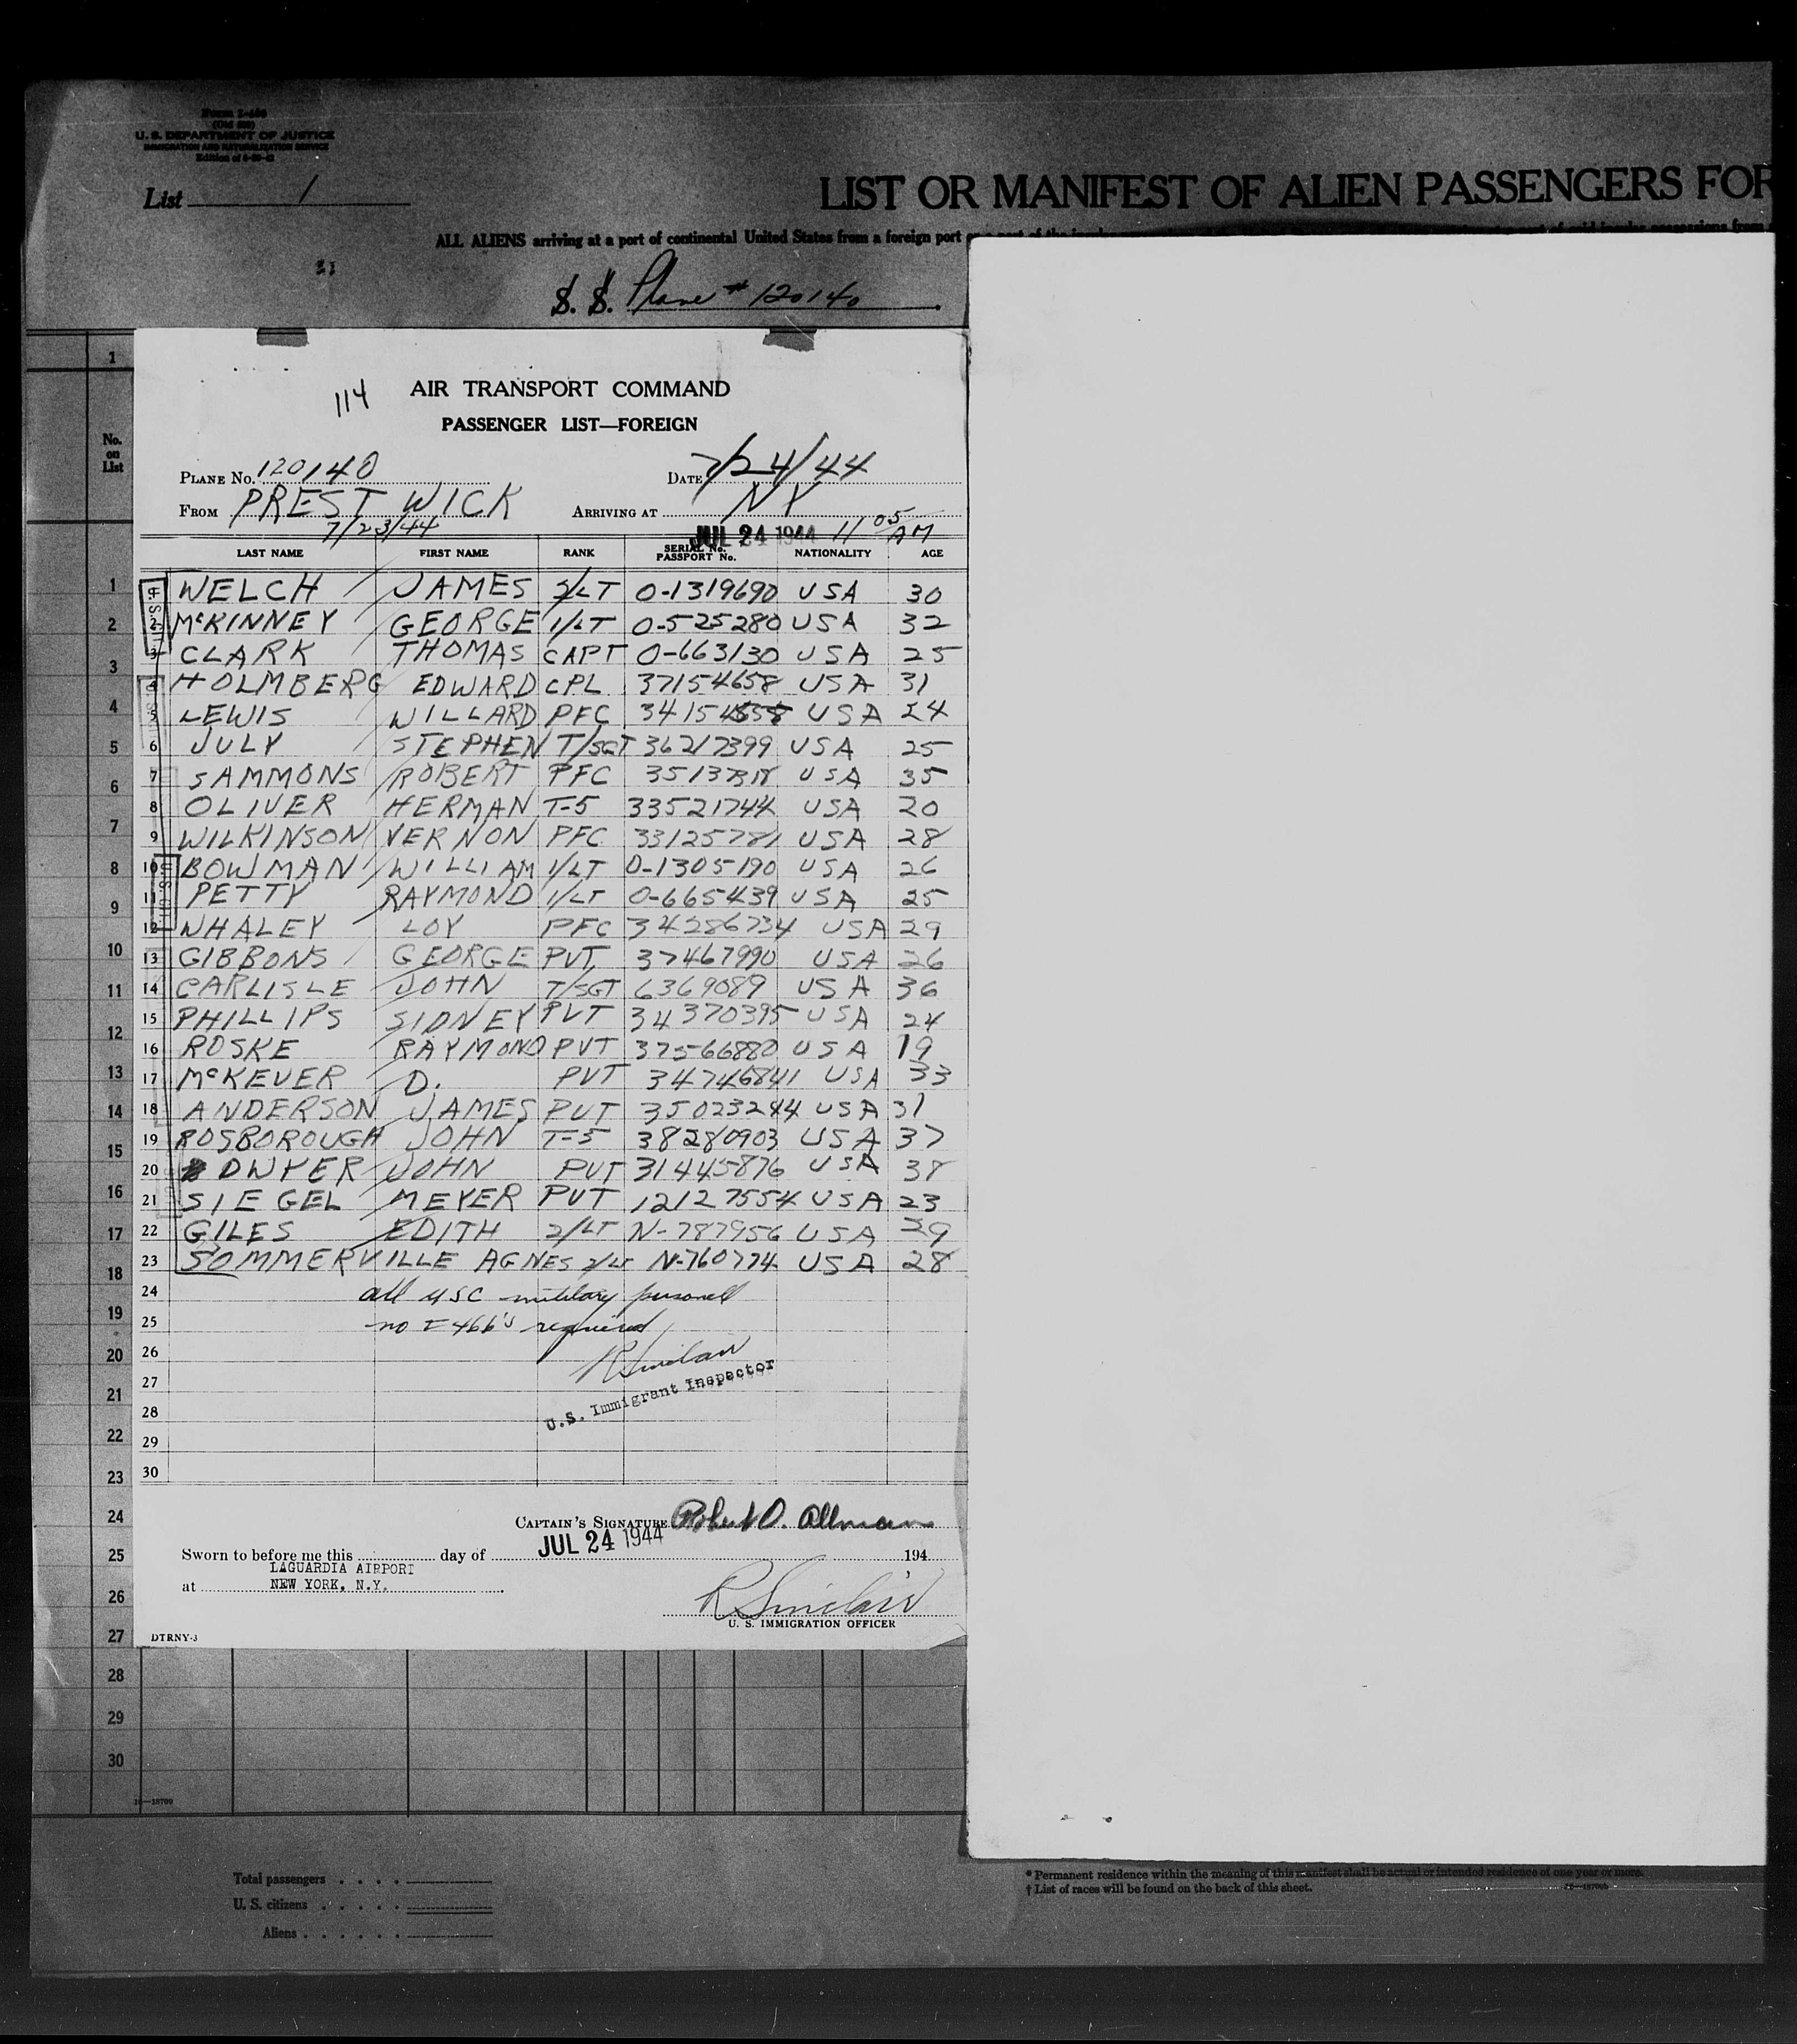 Form I-466
(Old 500)
U. S. DEPARTMENT OF JUSTICE
IMMIGRATION AND NATURALIZATION SERVICE
List 1
LIST OR MANIFEST OF ALIEN PASSENGERS FOR
ALL ALIENS arriving at a port of continental United States from a foreign port
S. S. Plane # 120140
114
AIR TRANSPORT COMMAND
PASSENGER LIST—FOREIGN
PLANE No. 120140 DATE 7/24/44
FROM PREST WICK ARRIVING AT NY
7/23/44 JUL 24 1944 11 05 AM
No. on List
LAST NAME FIRST NAME RANK SERIAL No. PASSPORT No. NATIONALITY AGE
1 WELCH JAMES 2/LT 0-1319690 USA 30
2 McKINNEY GEORGE 1/LT 0-525280 USA 32
3 CLARK THOMAS CAPT 0-663130 USA 25
4 HOLMBERG EDWARD CPL 37154658 USA 31
5 LEWIS WILLARD PFC USA 24
6 JULY STEPHEN T/SGT 36217399 USA 25
7 SAMMONS ROBERT PFC USA 35
8 OLIVER HERMAN T-5 33521744 USA 20
9 WILKINSON VERNON PFC 33125781 USA 28
10 BOWMAN WILLIAM 1/LT 0-1305190 USA 26
11 PETTY RAYMOND 1/LT 0-665439 USA 25
12 WHALEY LOY PFC 34286734 USA 29
13 GIBBONS GEORGE PVT 37467990 USA 26
14 CARLISLE JOHN T/SGT 6369089 USA 36
15 PHILLIPS SIDNEY PVT 34370395 USA 24
16 ROSKE RAYMOND PVT 37566880 USA 19
17 McKEVER D. PVT 34746841 USA 33
18 ANDERSON JAMES PVT 35023244 USA 31
19 ROSBOROUGH JOHN T-5 38280903 USA 37
20 DWYER JOHN PVT 31445876 USA 38
21 SIEGEL MEYER PVT 12127554 USA 23
22 GILES EDITH 2/LT N-787956 USA 29
23 SOMMERVILLE AGNES 2/LT N-760774 USA 28
24 all USC military personell
25 no I-466's required
26 R Sinclair
27 U.S. Immigrant Inspector
28
29
30
CAPTAIN'S SIGNATURE Robert O. Allman
Sworn to before me this day of JUL 24 1944 194
at LAGUARDIA AIRPORT
NEW YORK, N.Y.
R Sinclair
U. S. IMMIGRATION OFFICER
DTRNY-3
1
2
3
4
5
6
7
8
9
10
11
12
13
14
15
16
17
18
19
20
21
22
23
24
25
26
27
28
29
30
Total passengers
U. S. citizens
Aliens
* Permanent residence within the meaning of this manifest shall be actual or intended residence of one year or more.
† List of races will be found on the back of this sheet.